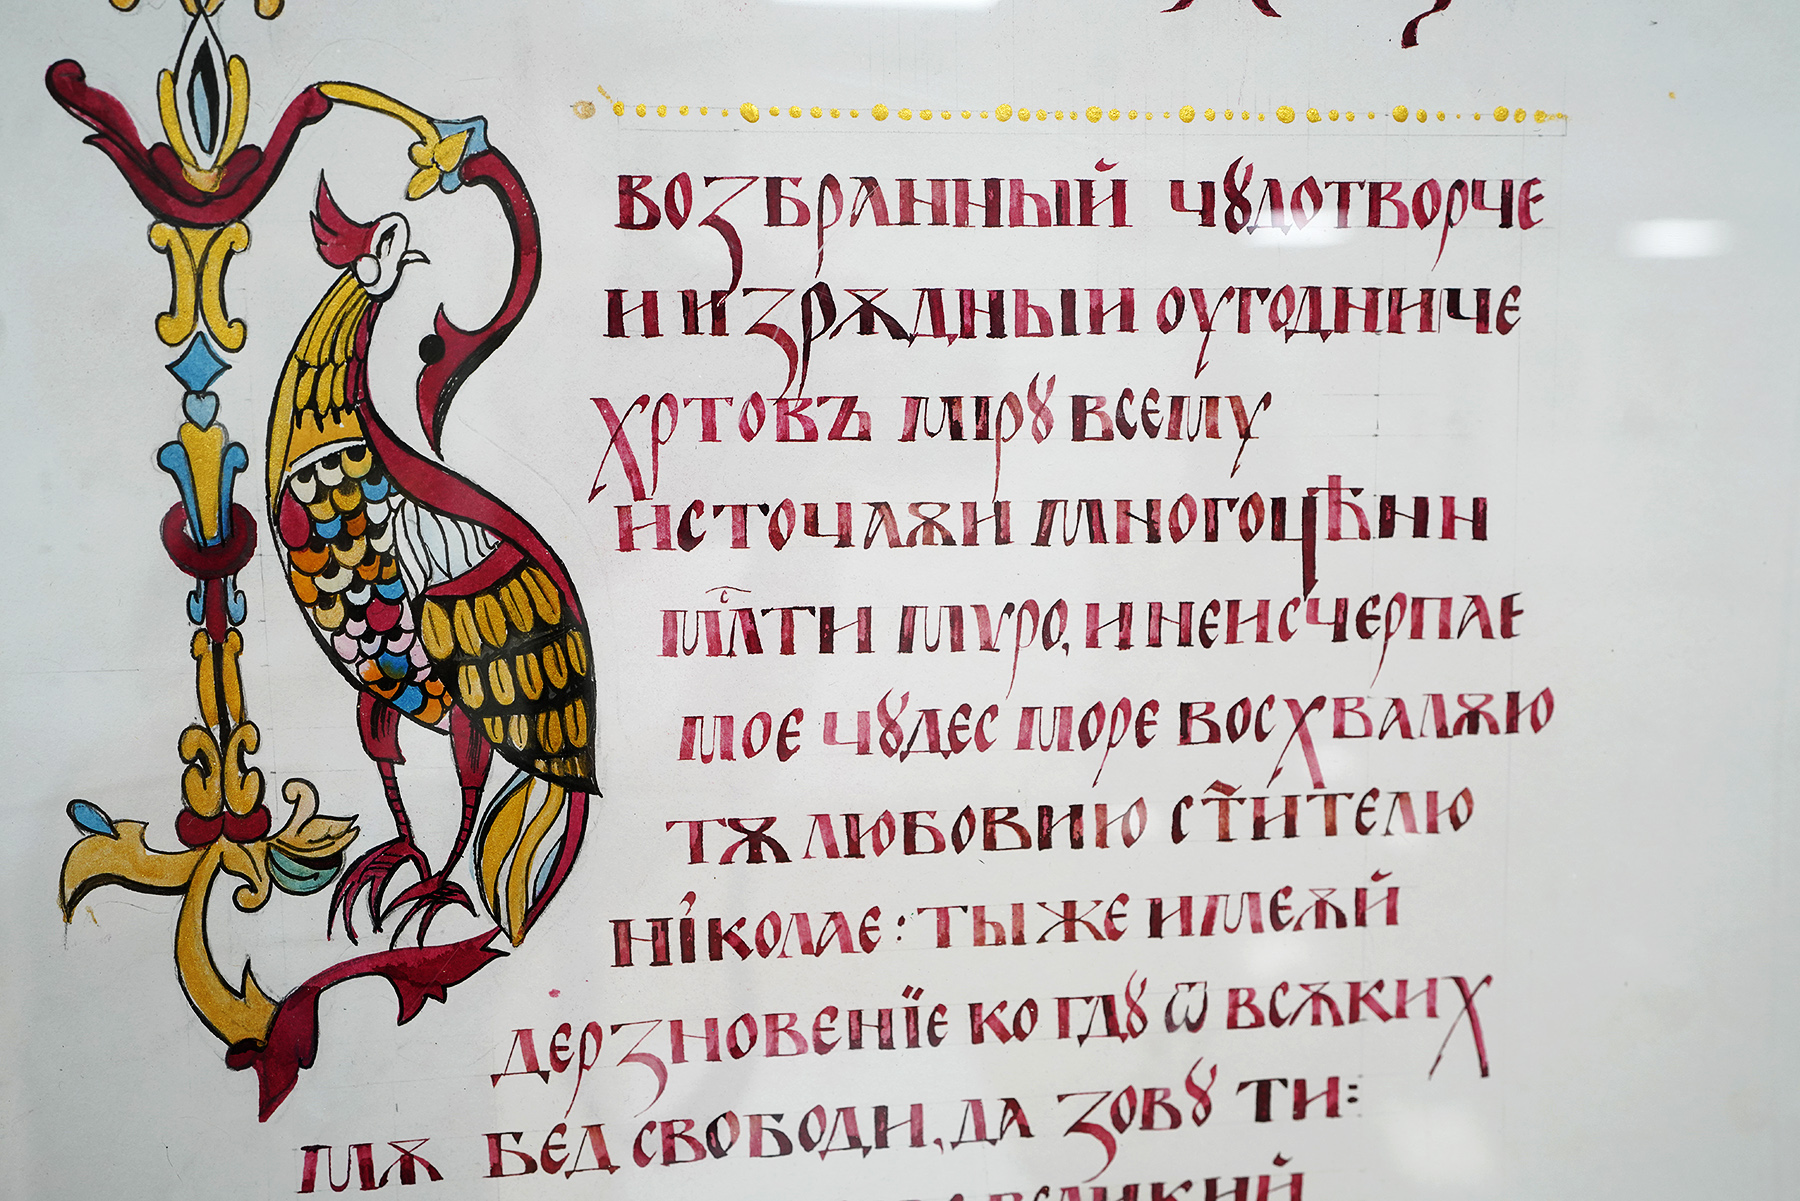 возбранный чꙋдотворче
и изрѧдныи оугодниче
хртовъ мірꙋ всему
источаѧи многоцѣнн
мл҇ти мѵро, и неисчерпае
мое чꙋдес море восхвалѧю
тѧ любовию ст҃ителю
ніколае : ты же имеѧй
дерзновенїе ко гдꙋ ѿ всѧких
мѧ бед свободи, да зовꙋ ти:
великий